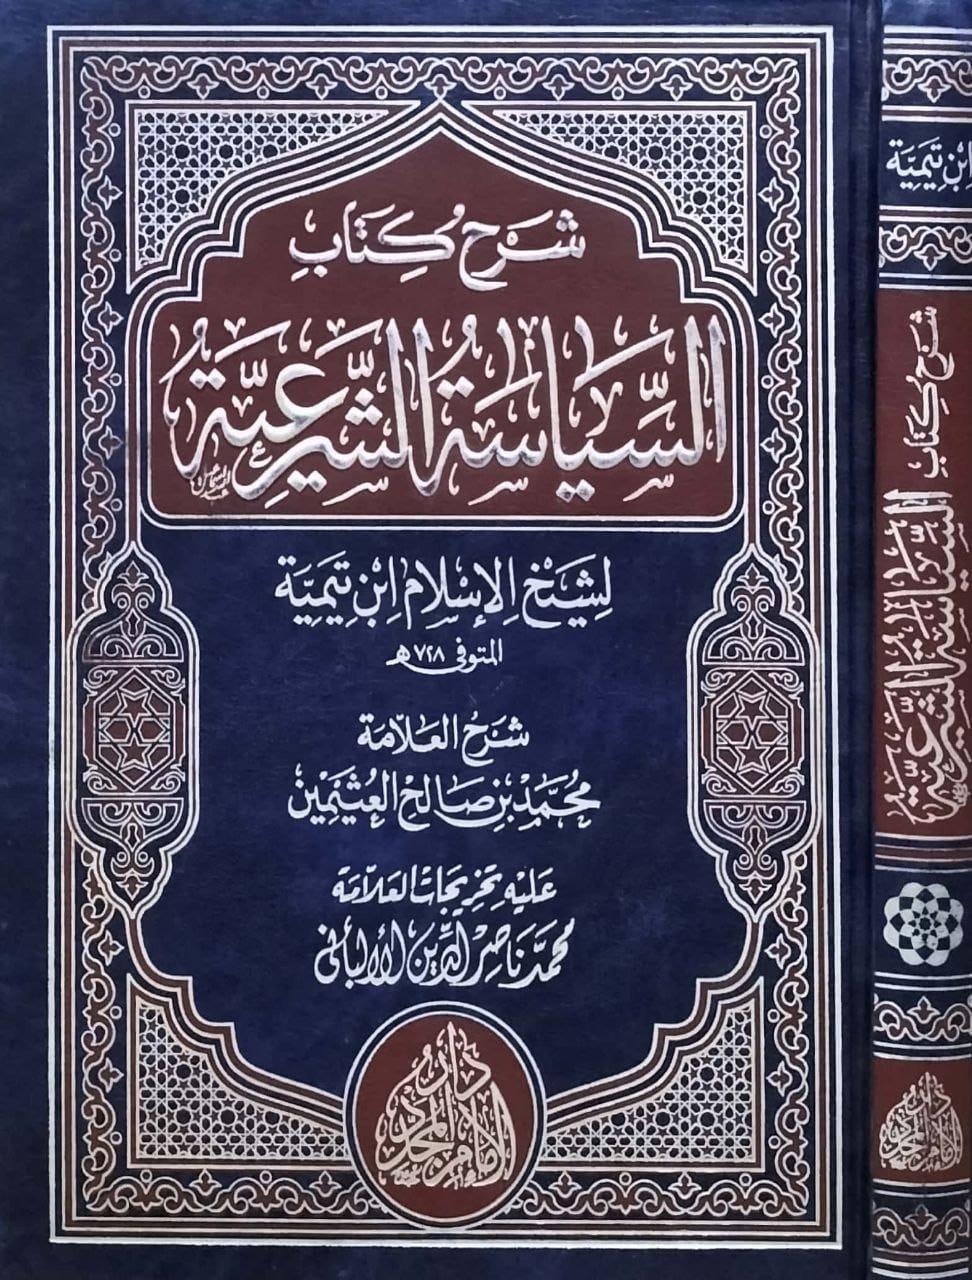 شَرْحُ كِتَابِ
السِّيَاسَةُ الشَّرْعِيَّةُ
لِشَيْخِ الإِسْلَامِ ابْنِ تَيْمِيَّة
المتوفى ٧٢٨هـ
شَرْحُ العَلَّامَة
مُحَمَّد بْنِ صَالِح العُثَيْمِين
عَلَيْهِ تَخْرِيجَاتُ العَلَّامَة
مُحَمَّد نَاصِر الدِّين الأَلْبَانِي
دَارُ الإِمَام المُجَدِّد
ابْنِ تَيْمِيَّة
شَرْحُ كِتَابِ
السِّيَاسَةُ الشَّرْعِيَّةُ
دَارُ الإِمَام المُجَدِّد